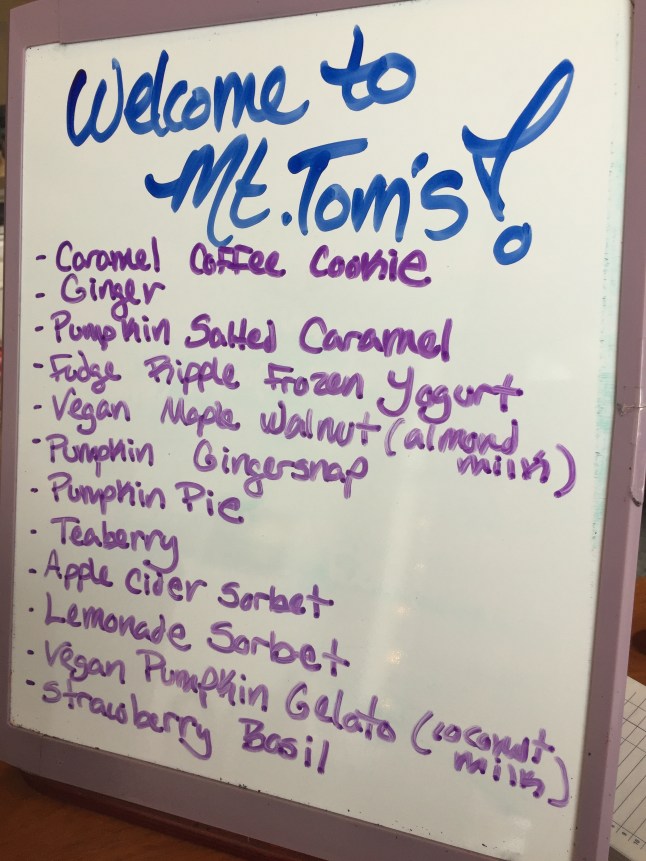 Welcome to
Mt. Tom's!
- Caramel Coffee Cookie
- Ginger
- Pumpkin Salted Caramel
- Fudge Ripple Frozen Yogurt
- Vegan Maple Walnut (almond
milk)
- Pumpkin Gingersnap
- Pumpkin Pie
- Teaberry
- Apple Cider Sorbet
- Lemonade Sorbet
- Vegan Pumpkin Gelato (coconut
milk)
- Strawberry Basil